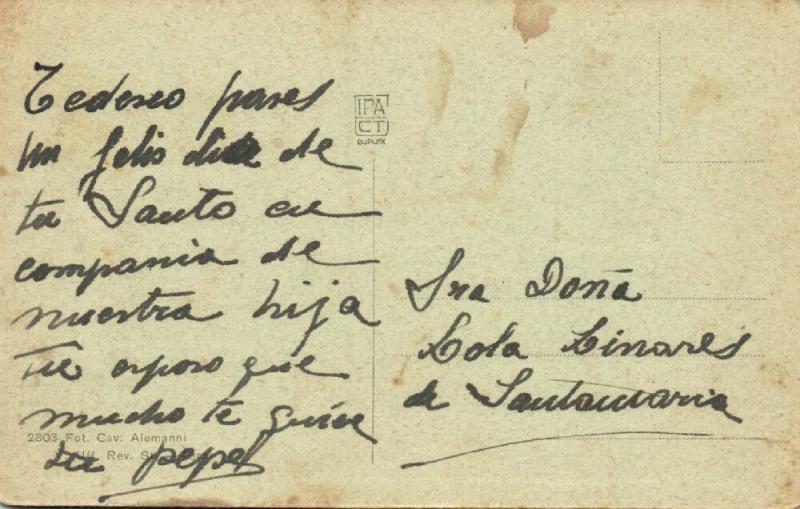 Tedeseo pases
un felis dia de
tu Santo en
compania de
nuestra hija
Tu esposo que
mucho te quiere
tu pepe
IPA
CT
DUPLEX
Sra Doña
Lola Linares
de Santamaria
2803 Fot. Cav. Alemanni
Uff. Rev. St